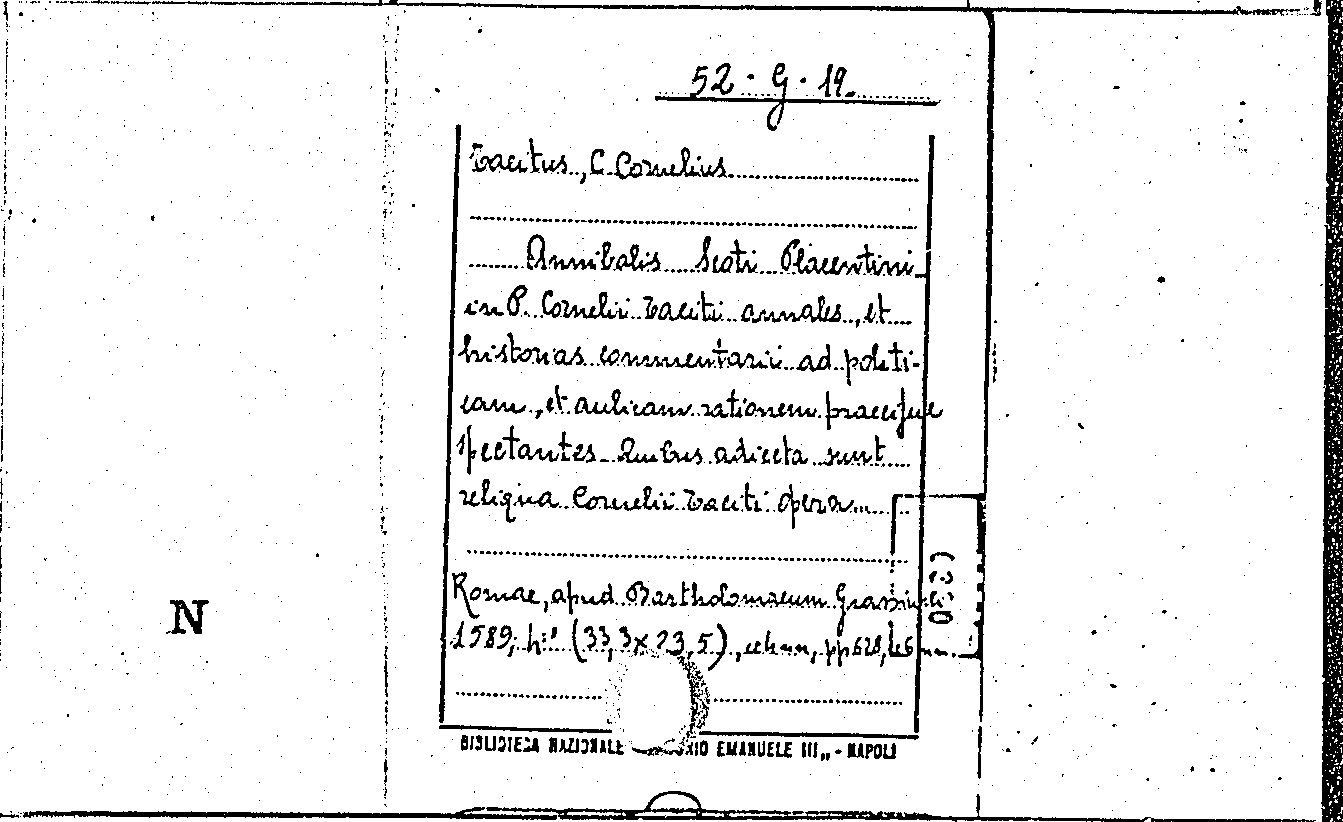 52 · G · 19.
Tacitus, C. Cornelius
Annibalis Scoti Placentini
in P. Cornelii Taciti annales, et
historias commentarii ad politi-
cam, et aulicam rationem praecipue
spectantes. Quibus adiecta sunt
reliqua Cornelii Taciti opera...
Romae, apud Bartholomaeum
1589; (33,3 x 23,5), pp 628,
BIBLIOTECA NAZIONALE EMANUELE III„ - NAPOLI
N